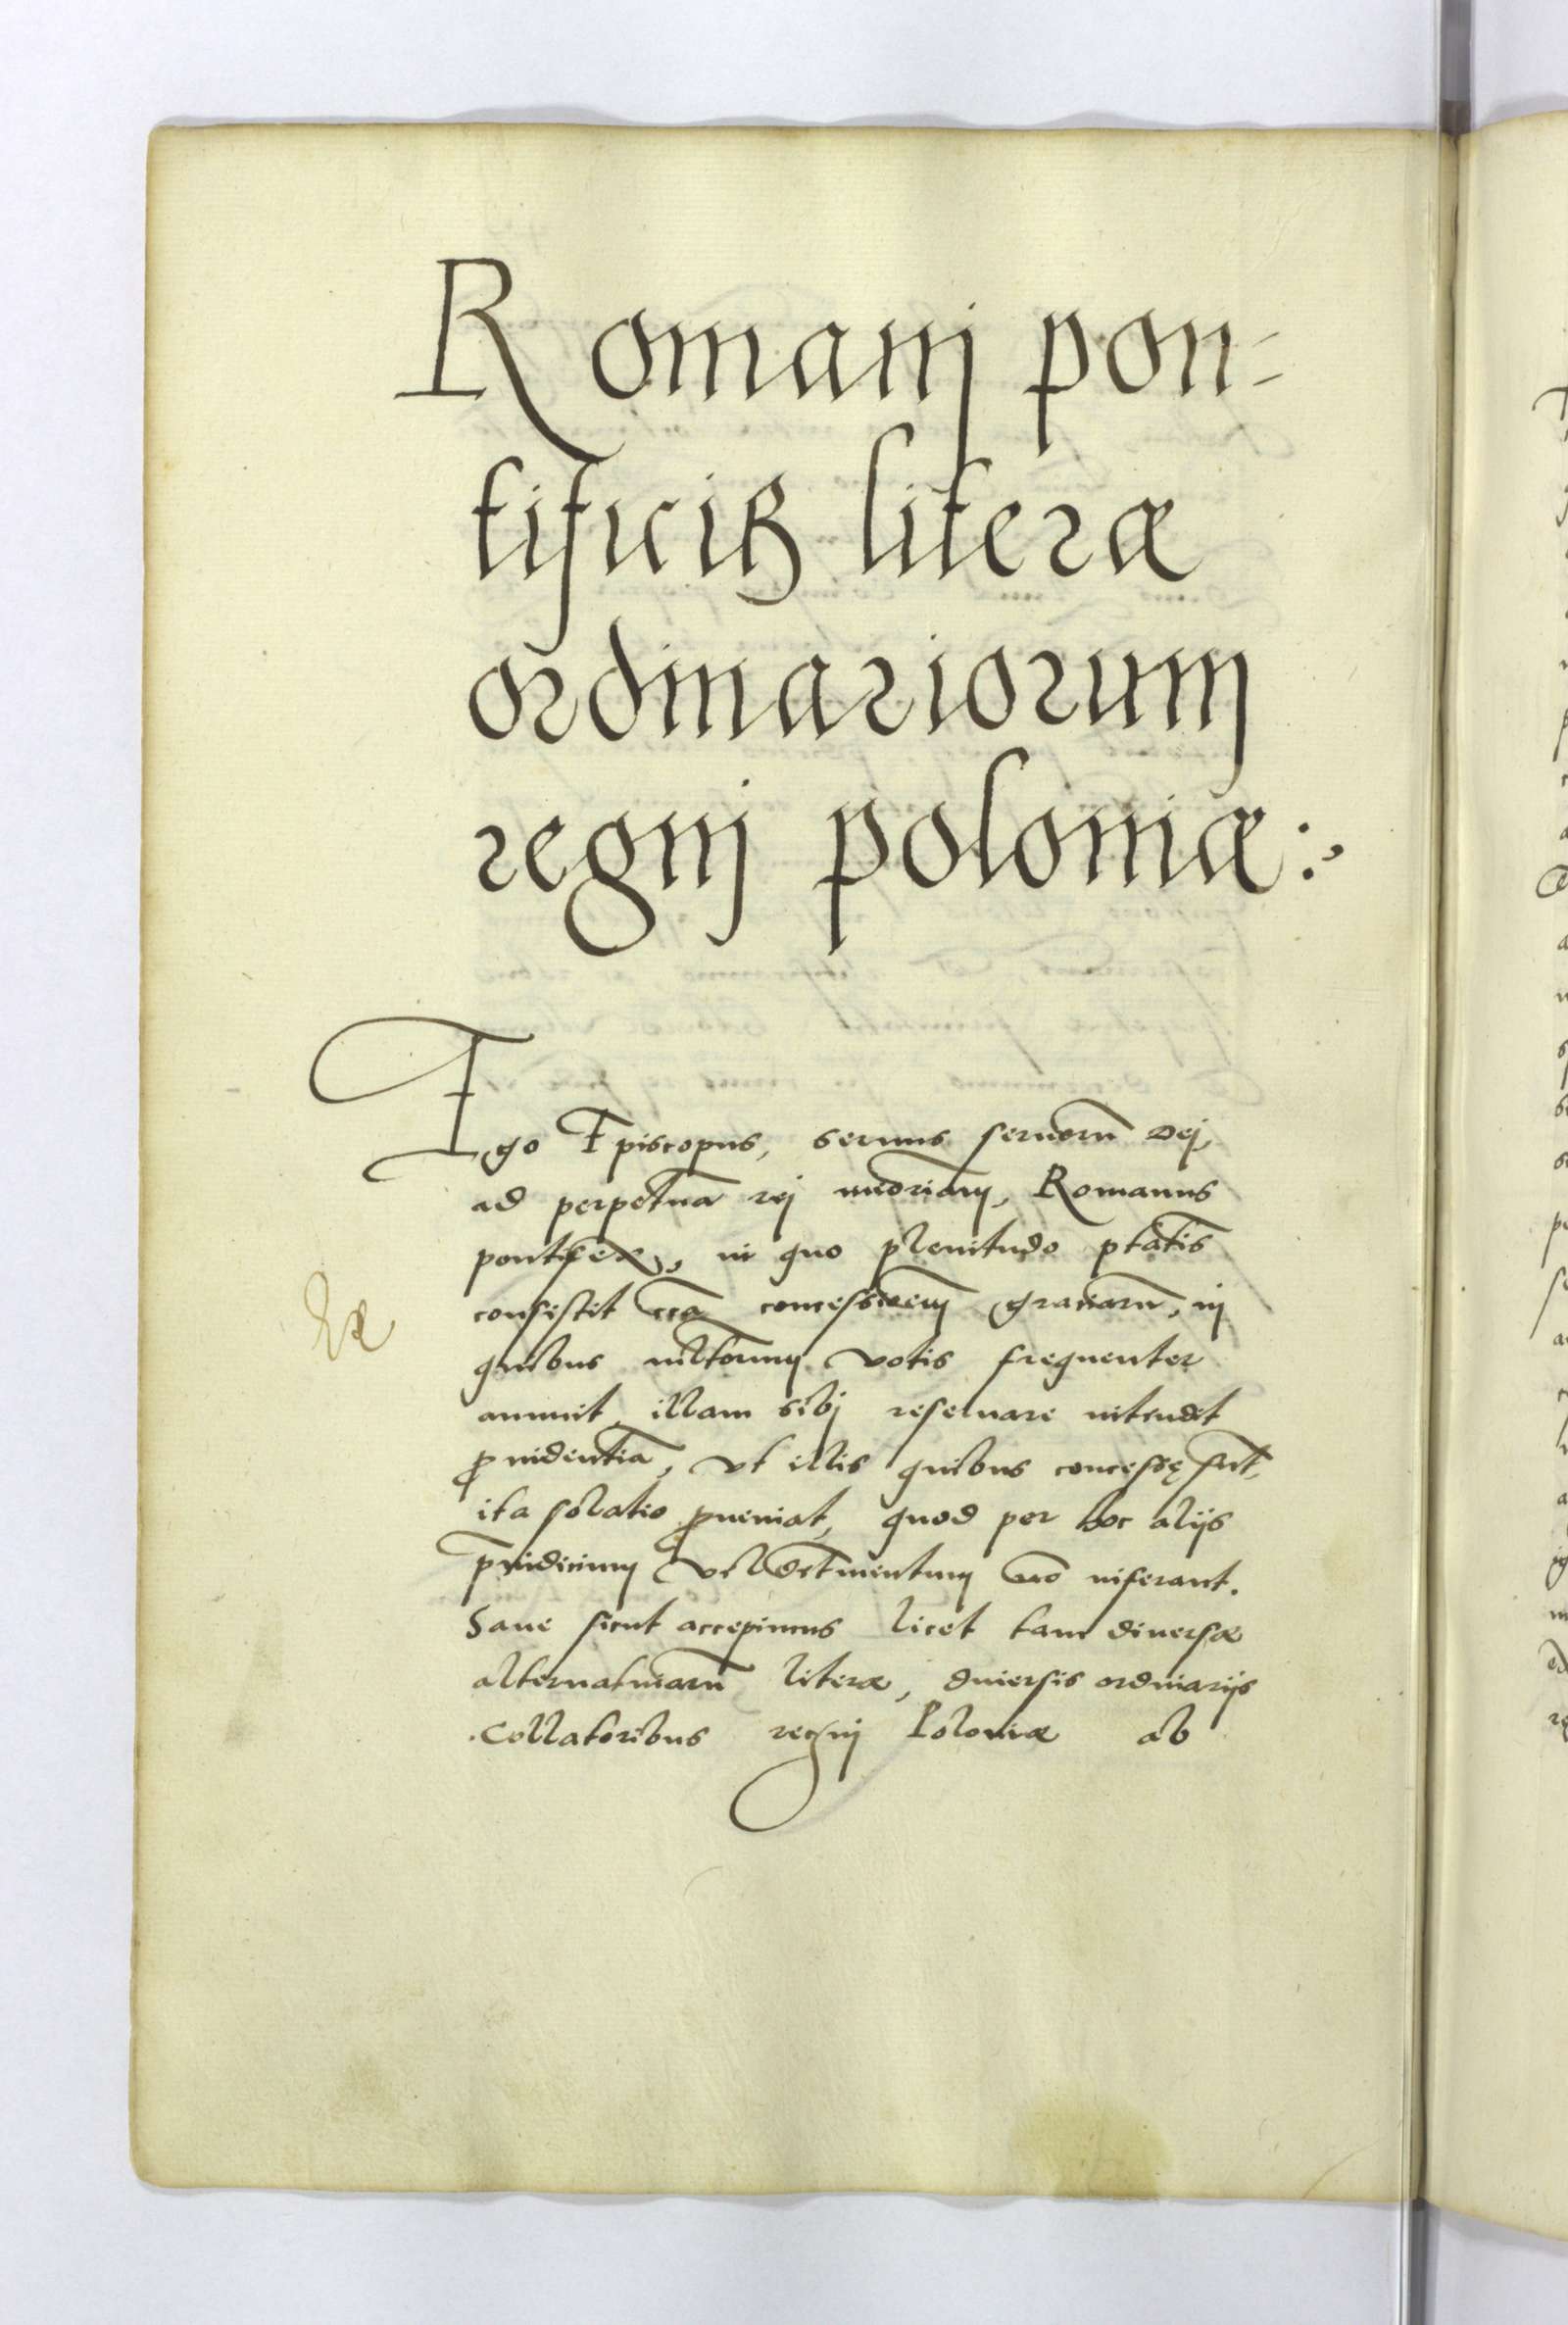 Romanj pon=
tificis literæ
ordinariorum
regnj poloniæ:
Ego Episcopus, seruus seruorū Dej,
ad perpetuā rej memoriam, Romanus
pontifex, in quo plenitudo ptātis
consistit ccā concessionem gratiarū, in
quibus multorum votis frequenter
annuit, illam sibj reseruare intendit
prouidentiā, vt illis quibus concessę sūt,
ita solatio proueniat, quod per hoc alijs
p̄iudicium vel detrimentum nō inferant.
Sane sicut accepimus licet tam diuersæ
alternatiuarū literæ, diuersis ordinarijs
Collatoribus regnj Poloniæ ab